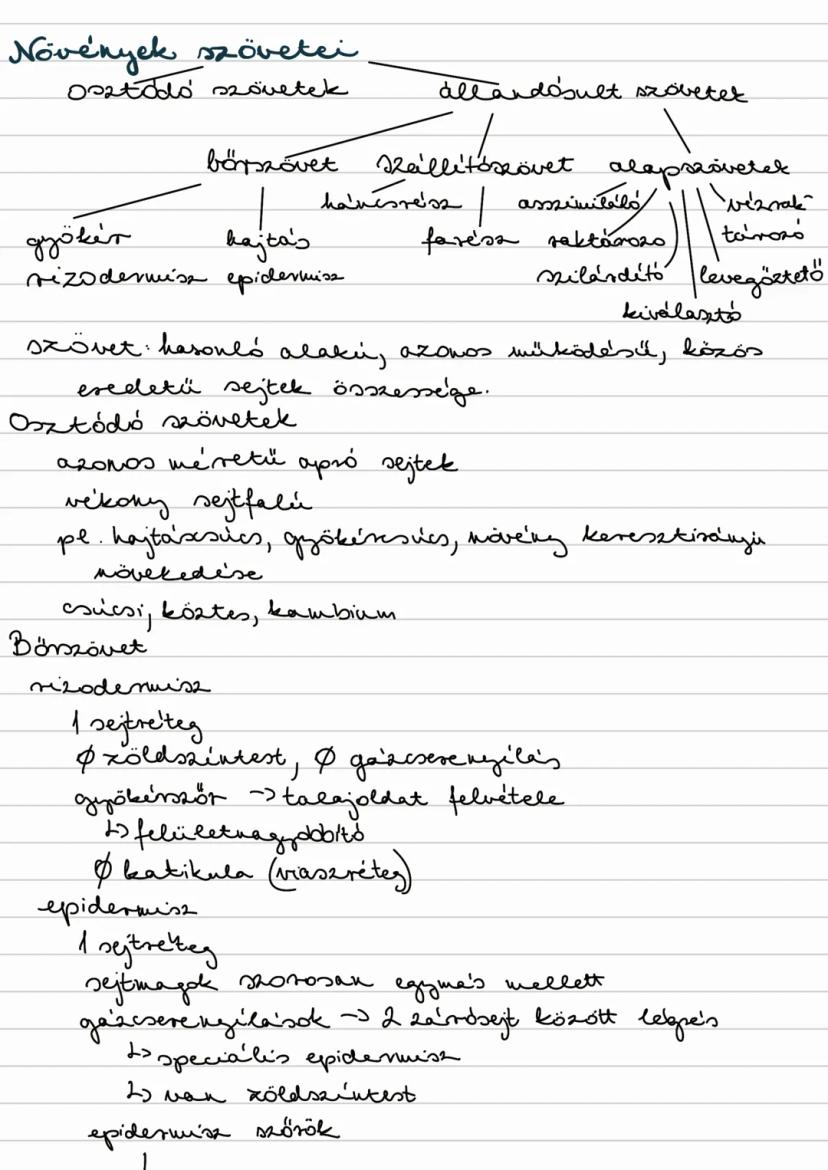 Növények szövetei
osztódó szövetek állandósult szövetek
bőrszövet szállítószövet alapszövetek
háncsrész asszimiláló vízrak-
gyökér hajtás farész raktározo tározó
rizodermisz epidermisz szilárdító levegőztető
kiválasztó
szövet: hasonló alakú, azonos működésű, közös
eredetű sejtek összessége.
Osztódó szövetek
azonos méretű apró sejtek
vékony sejtfalú
pl. hajtáscsúcs, gyökércsúcs, növény keresztirányú
növekedése
csúcsi, köztes, kambium
Bőrszövet
rizodermisz
1 sejtréteg
Ø zöldszíntest, Ø gázcserenyílás
gyökérszőr -> talajoldat felvétele
↳ felületnagyobbító
Ø katikula (viaszréteg)
epidermisz
1 sejtréteg
sejtmagok szorosan egymás mellett
gázcserenyílások -> 2 zárósejt között
↳ speciális epidermisz
↳ van zöldszíntest
epidermisz szőrök